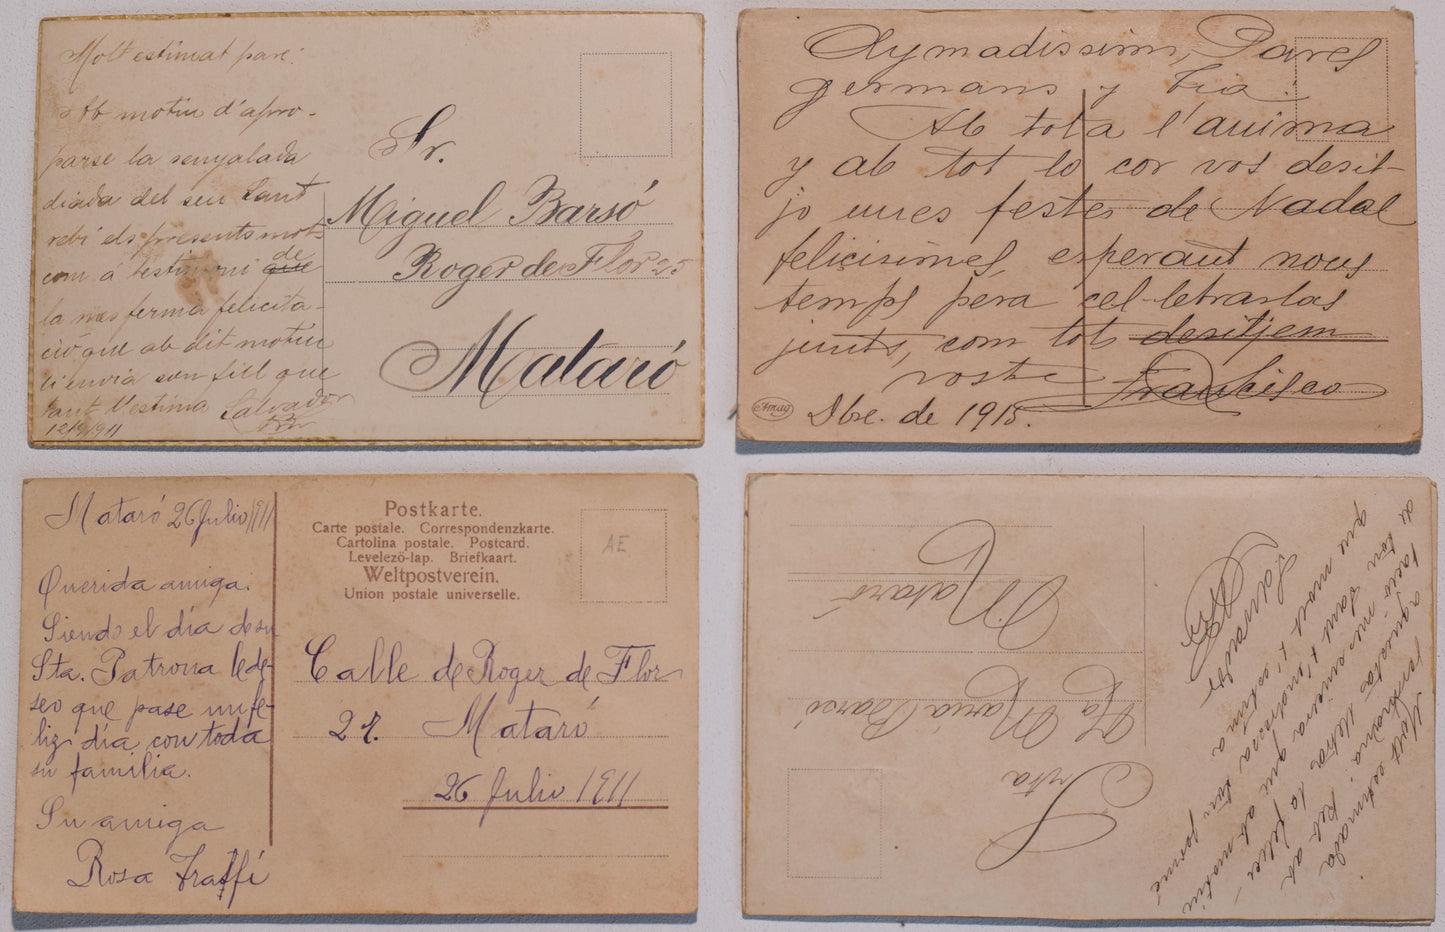 Molt estimat pare:
Ab motiu d'apro-
parse la senyalada
diada del seu Sant
rebi els presents mots
com á testimoni que de
la mes ferma felicita-
ció que ab dit motiu
li envia son fill que
tant l'estima Salvador
12/9/1911
Sr.
Miguel Barsó
Roger de Flor 25
Mataró
Aymadissims Pares
germans y tia:
Ab tota l'anima
y ab tot lo cor vos desit-
jo unes festes de Nadal
felicisimes, esperant nous
temps pera cel-lebrarlas
junts, com tots desitjem
vostre Francisco
Amag
Dbre. de 1915.
Mataró 26 Julio 1911
Querida amiga.
Siendo el día de su
Sta. Patrona le de-
seo que pase un fe-
liz día con toda
su familia.
Su amiga
Rosá
Postkarte.
Carte postale. Correspondenzkarte.
Cartolina postale. Postcard.
Levelező-lap. Briefkaart.
Weltpostverein.
Union postale universelle.
AE
Calle de Roger de Flor
27. Mataró
26 Julio 1911
Srta
Maria Barsó
Mataró
Molt estimada
Reb ab
aquestas lletras la felici-
que ab motiu
de ton Sant
que molt t'estima
Salvador